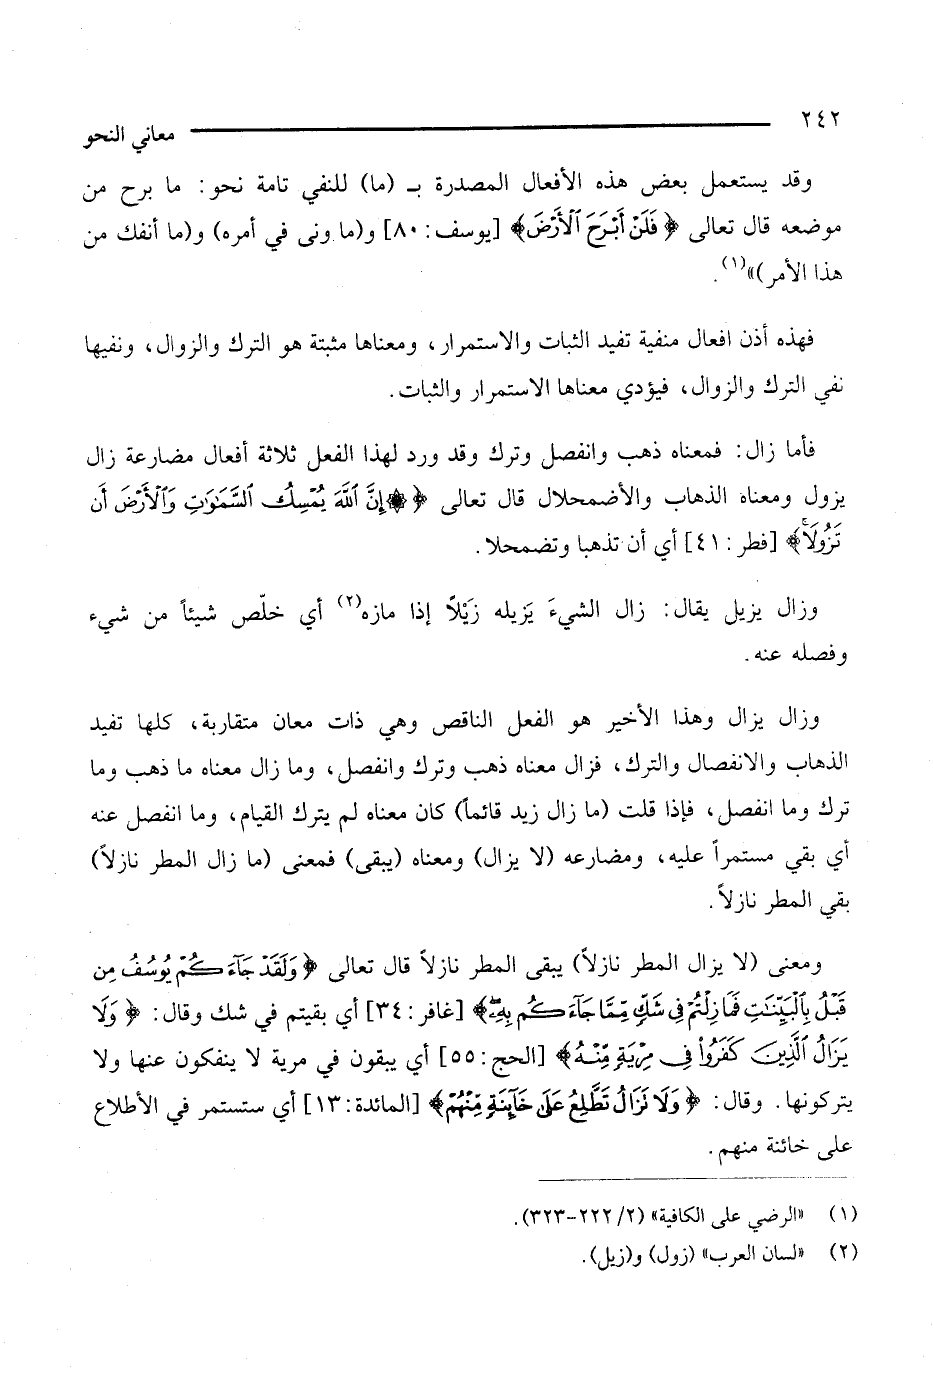 ٢٤٢
معاني النحو
وقد يستعمل بعض هذه الأفعال المصدرة بـ (ما) للنفي تامة نحو: ما برح من
موضعه قال تعالى ﴿ فَلَنْ أَبْرَحَ ٱلْأَرْضَ﴾ [يوسف: ٨٠] و(ما ونى في أمره) و(ما أنفك من
هذا الأمر)»(١).
فهذه أذن افعال منفية تفيد الثبات والاستمرار، ومعناها مثبتة هو الترك والزوال، ونفيها
نفي الترك والزوال، فيؤدي معناها الاستمرار والثبات.
فأما زال: فمعناه ذهب وانفصل وترك وقد ورد لهذا الفعل ثلاثة أفعال مضارعة زال
يزول ومعناه الذهاب والأضمحلال قال تعالى ﴿ ۞ إِنَّ ٱللَّهَ يُمْسِكُ ٱلسَّمَٰوَٰتِ وَٱلْأَرْضَ أَن
تَزُولَاۚ﴾ [فطر: ٤١] أي أن تذهبا وتضمحلا.
وزال يزيل يقال: زال الشيءَ يَزيله زَيْلاً إذا مازه(٢) أي خلّص شيئاً من شيء
وفصله عنه.
وزال يزال وهذا الأخير هو الفعل الناقص وهي ذات معان متقاربة، كلها تفيد
الذهاب والانفصال والترك، فزال معناه ذهب وترك وانفصل، وما زال معناه ما ذهب وما
ترك وما انفصل، فإذا قلت (ما زال زيد قائماً) كان معناه لم يترك القيام، وما انفصل عنه
أي بقي مستمراً عليه، ومضارعه (لا يزال) ومعناه (يبقى) فمعنى (ما زال المطر نازلاً)
بقي المطر نازلاً.
ومعنى (لا يزال المطر نازلاً) يبقى المطر نازلاً قال تعالى ﴿ وَلَقَدْ جَآءَكُمْ يُوسُفُ مِن
قَبْلُ بِٱلْبَيِّنَٰتِ فَمَا زِلْتُمْ فِى شَكٍّ مِّمَّا جَآءَكُم بِهِۦ﴾ [غافر: ٣٤] أي بقيتم في شك وقال: ﴿ وَلَا
يَزَالُ ٱلَّذِينَ كَفَرُوا۟ فِى مِرْيَةٍ مِّنْهُ﴾ [الحج: ٥٥] أي يبقون في مرية لا ينفكون عنها ولا
يتركونها. وقال: ﴿ وَلَا تَزَالُ تَطَّلِعُ عَلَىٰ خَآئِنَةٍ مِّنْهُمْ﴾ [المائدة: ١٣] أي ستستمر في الأطلاع
على خائنة منهم.
(١) «الرضي على الكافية» (٢/ ٢٢٢-٣٢٣).
(٢) «لسان العرب» (زول) و(زيل).